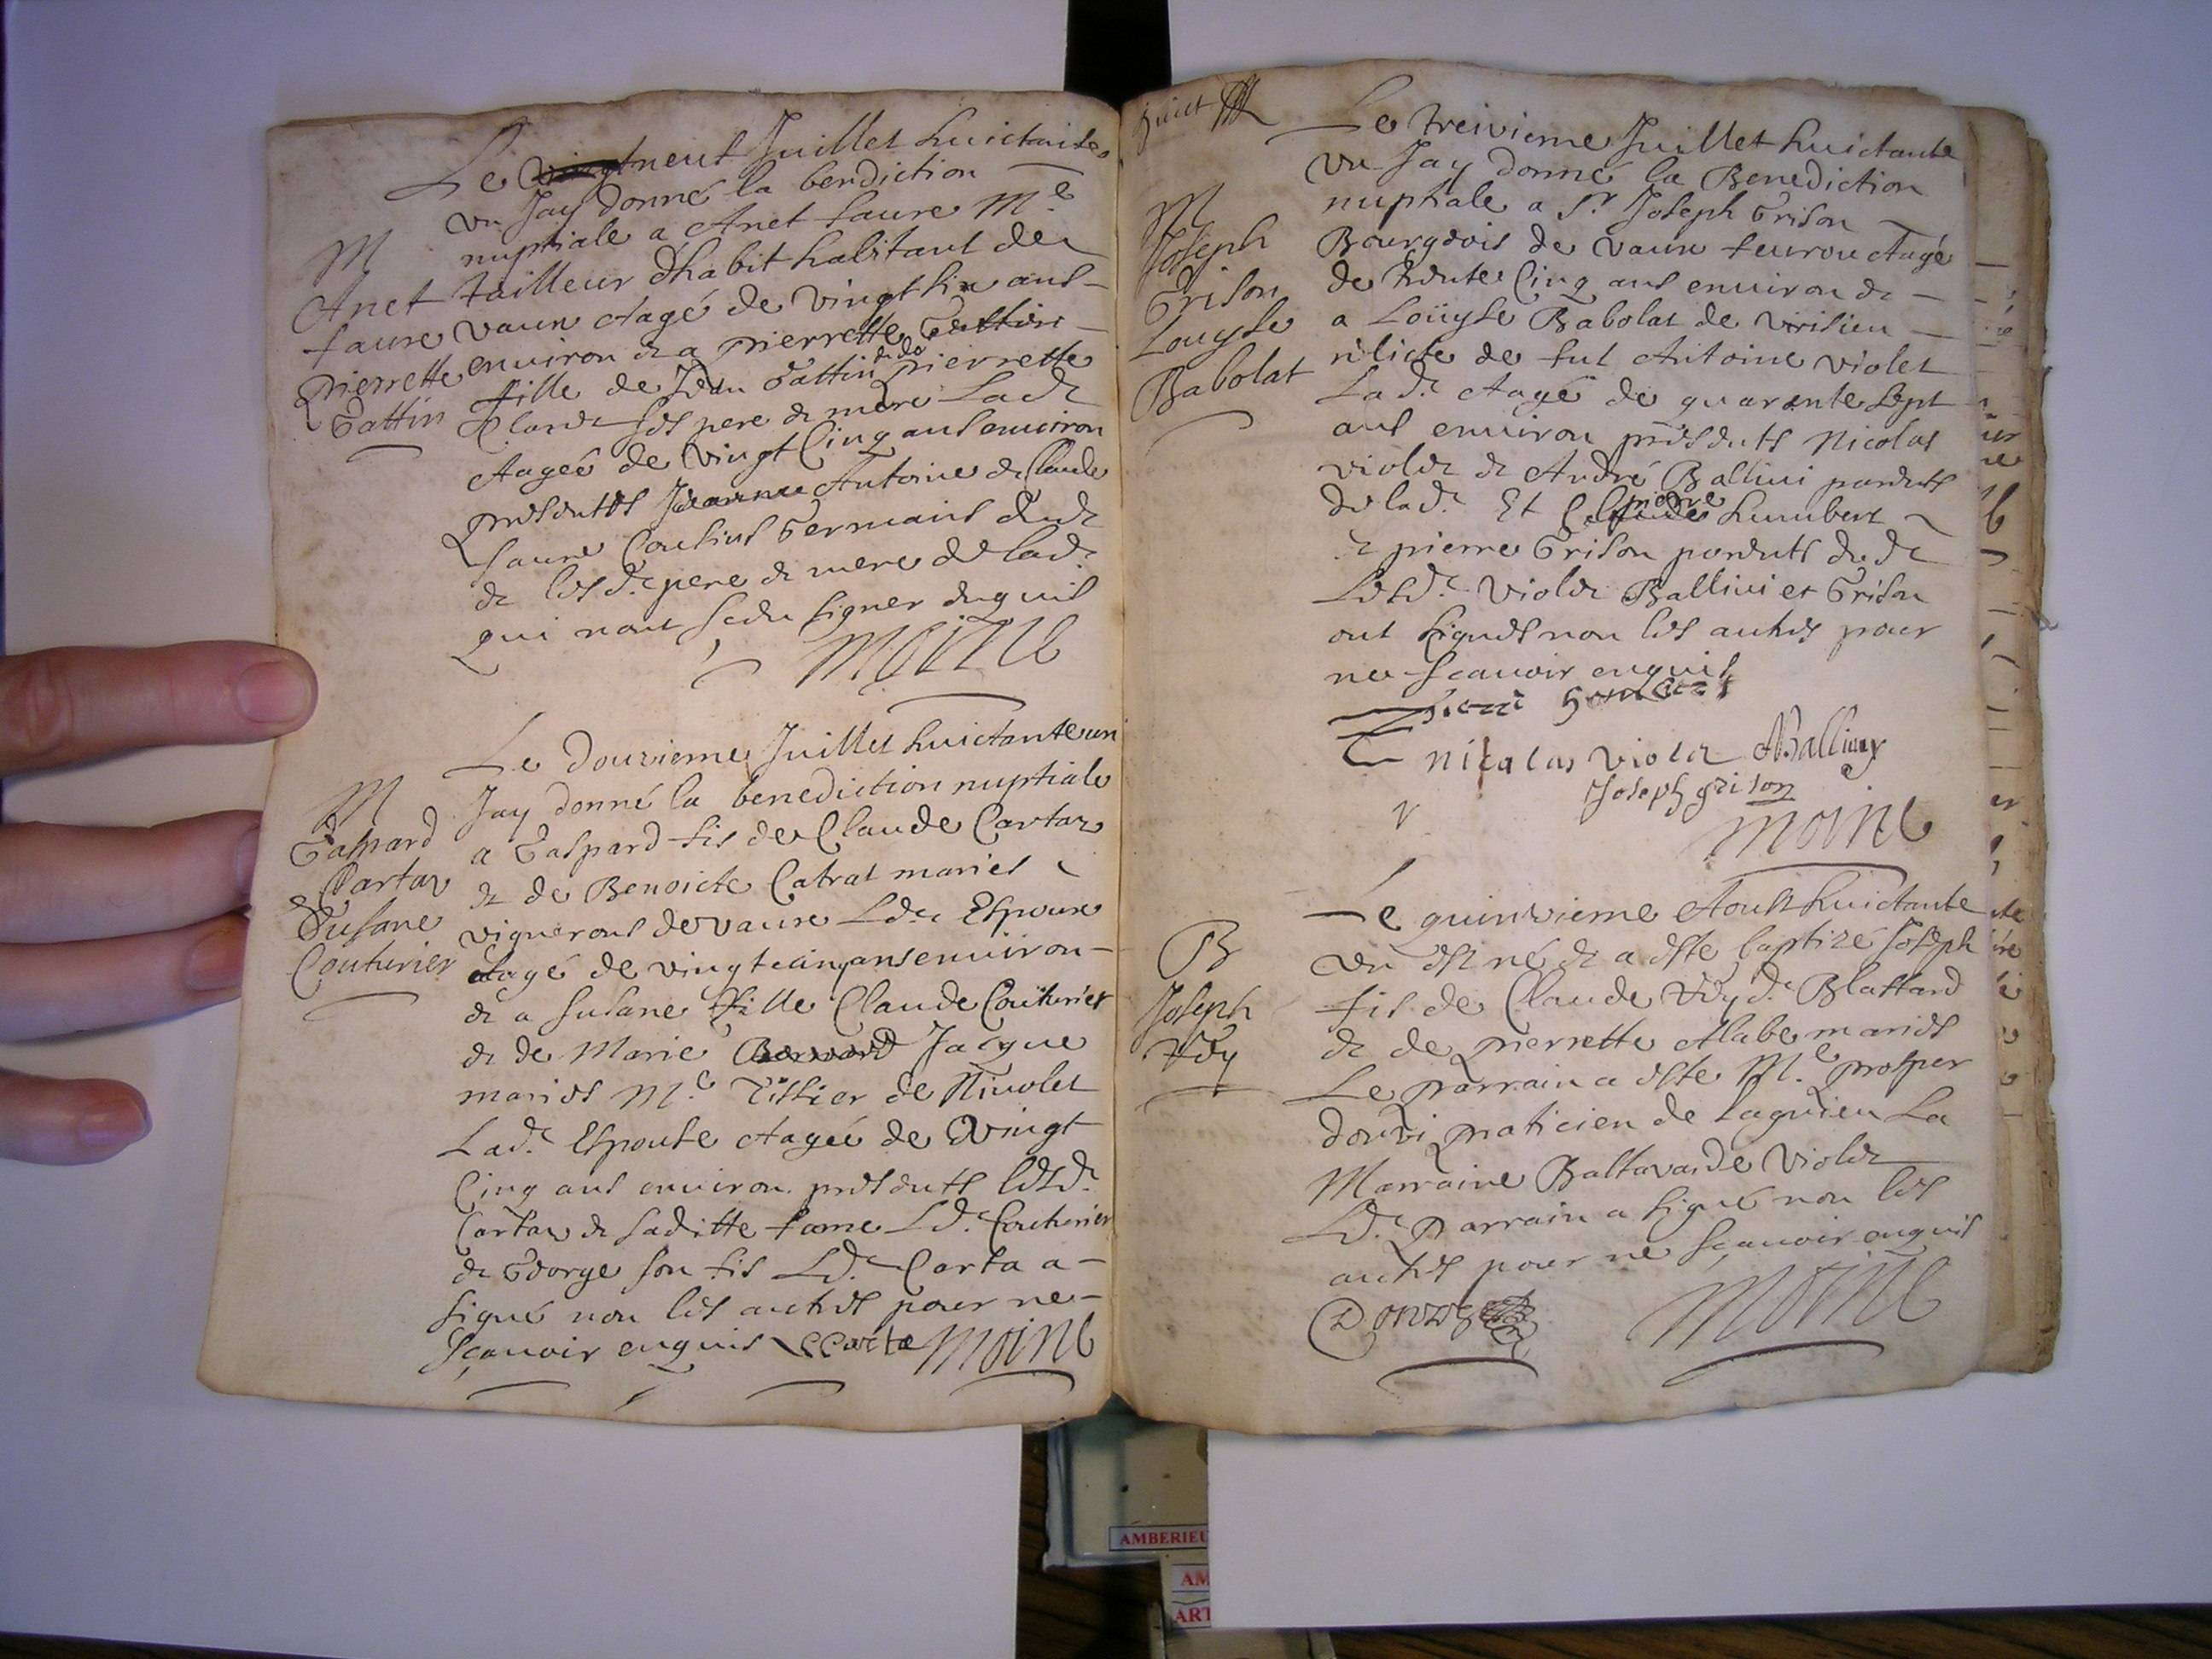 Le neuf Juillet huictante
un Jay donné la bendiction
nuptiale a Anet faure M.e
tailleur dhabit habitant de
vaux Aagé de vingt six ans
environ & a pierrette Gattin
fille de Jean Gattin & de pierrette
ses pere & mere Lad.
Aageé de vingt Cinq ans environ
presents Antoine & Claude
faure Cousins Germains dud
& lesd. pere & mere de lad.
qui nont sceu signer enquis
Moine
M
Anet
faure
pierrette
Gattin
Le douzieme Juillet huictante un
Jay donné la benediction nuptiale
a Gaspard fis de Claude Cartaz
& de Benoicte Catrat mariés
vignerons de vaux Ld. Espoux
Aagé de vingt cinq ans environ
& a susane fille Claude Couturier
& de Marie Jacque
mariés M.e Tissier de Nivolet
Lad. Espouse Aageé de Vingt
Cinq ans environ presents lesd.
Cartaz & saditte fame Ld. Couturier
& George son fis Ld. Carta a
signé non les autres pour ne
scavoir enquis C Carta Moine
M
Gaspard
Cartaz
& Susane
Couturier
huict
Le treizieme Juillet huictante
un Jay donné la Benediction
nuptiale a S.r Joseph Grison
Bourgeois de vaux feurou Aagé
de trente Cinq ans environ &
a Loüyse Babolat de virisieu
relicte de fut Antoine violet
Lad. Aagé de quarante sept
ans environ presents Nicolas
violet & André Ballini parents
de lad. Et pierre humbert
& pierre Grison parents dud
Lesd. Violet Ballini et Grison
ont signés non les autres pour
ne scavoir enquis
nicolas violet ABalliny
Joseph grison
Moine
M
Joseph
Grison
Louyse
Babolat
Le quinzieme Aoust huictante
un est né & a este baptizé Joseph
fis de Claude Vdy d. Blattard
& de pierrette Alabe mariés
Le parrain a este M.e prosper
donzi praticien de lagnieu La
Marraine Baltazarde Violet
Ld. parrain a signé non les
autres pour ne scavoir enquis
Donzy
Moine
B
Joseph
Vdy
AMBERIEU
AM
ART